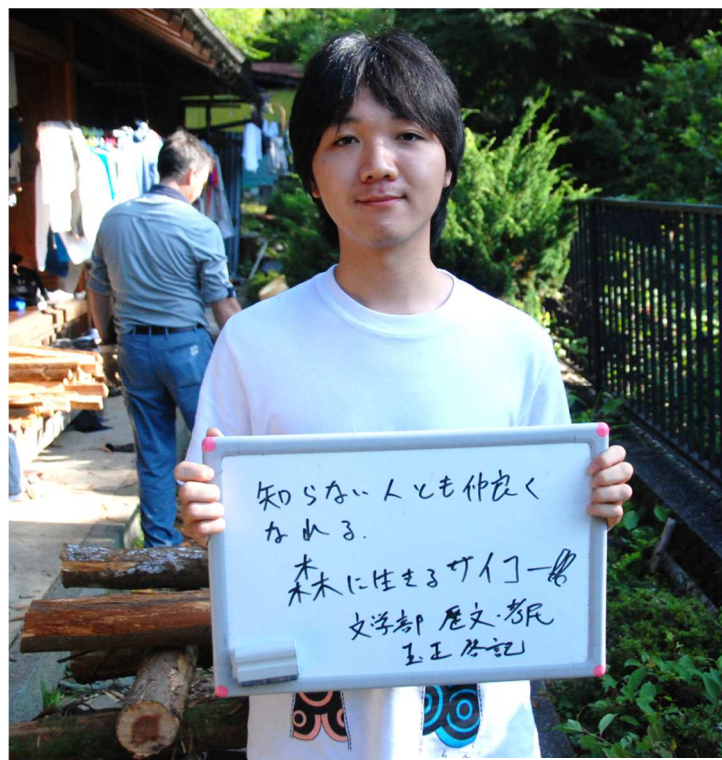 知らない人とも仲良く
なれる.
森に生きるサイコー!!!
文学部 歴文・考民
玉正 啓記